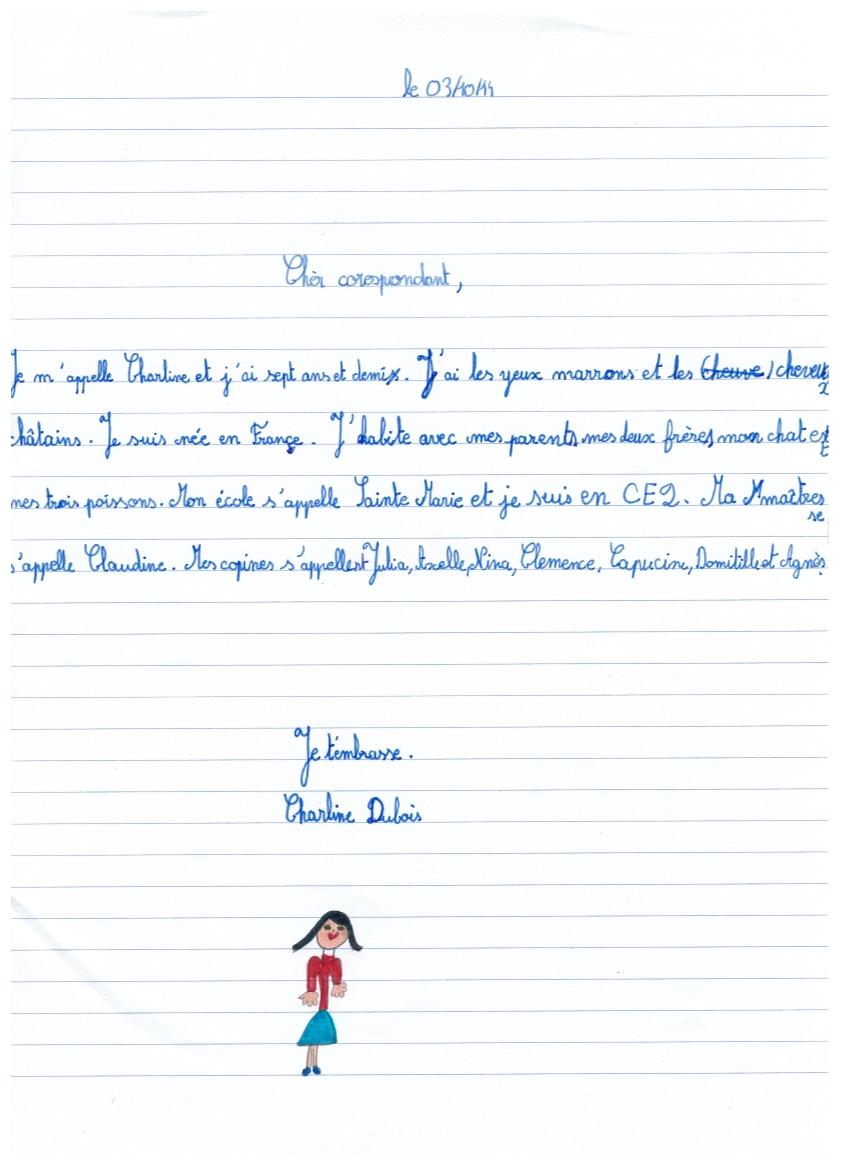 le 03/10/14
Chèr corespondant,
Je m'appelle Charline et j'ai sept ans et demi. J'ai les yeux marrons et les cheuve / cheveux
châtains. Je suis née en France. J'habite avec mes parents, mes deux frères, mon chat et
mes trois poissons. Mon école s'appelle Sainte Marie et je suis en CE2. Ma maîtres
se
s'appelle Claudine. Mes copines s'appellent Julia, Axelle, Nina, Clemence, Capucine, Domitille et Agnès
Je t'embrasse.
Charline Dubois